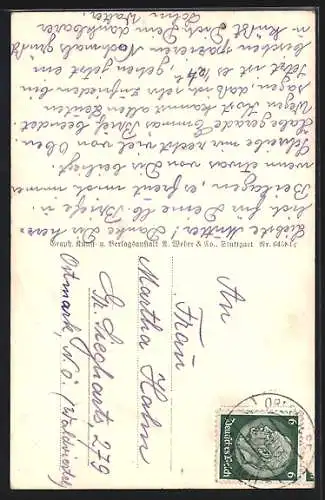 Liebste Mutter! Danke Dir herz-
lich für Deine lb. Briefe u.
Beilagen, es freut mich immer
wenn etwas von Dir beiliegt.
Schreibe mir recht viel von Oben.
Habe gerade Emmas Brief beendet.
Wegen Kost kannst allen Leuten
sagen, daß ich sehr zufrieden bin.
Jetzt ist es gehen jetzt ein
bisschen spazieren. Nochmals grüßt
u. küßt Dich Dein dankbarer
Sohn Walter.
Graph. Kunst- u. Verlagsanstalt R. Weber & Co., Stuttgart
An
Frau
Martha Hahn
Gr. Siegharts, 279
Ostmark, N.Ö. (Waldviertel)
6 6
Deutsches Reich